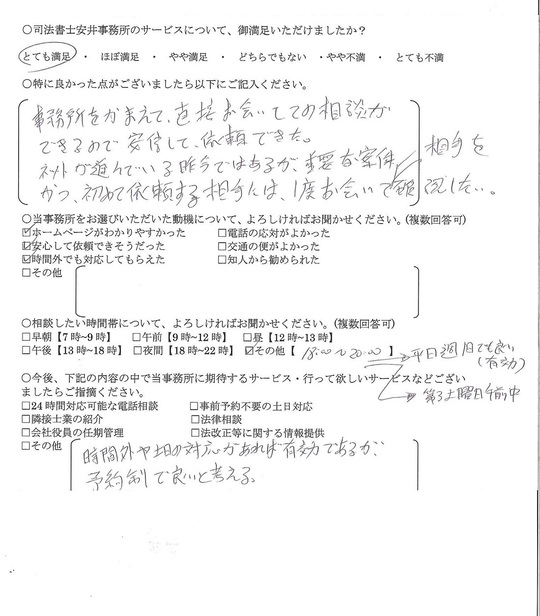 ○司法書士安井事務所のサービスについて、御満足いただけましたか？
とても満足 ・ ほぼ満足 ・ やや満足 ・ どちらでもない ・やや不満 ・ とても不満
○特に良かった点がございましたら以下にご記入ください。
事務所をかまえて、直接お会いしての相談が
できるので安心して、依頼できた。
ネットが進んでいる昨今ではあるが、重要な案件
かつ、初めて依頼する相手には、1度お会いして相手を確認したい。
○当事務所をお選びいただいた動機について、よろしければお聞かせください。(複数回答可)
☑ホームページがわかりやすかった □電話の応対がよかった
☑安心して依頼できそうだった □交通の便がよかった
☑時間外でも対応してもらえた □知人から勧められた
□その他
○相談したい時間帯について、よろしければお聞かせください。(複数回答可)
□早朝【7時~9時】 □午前【9時~12時】 □昼【12時~13時】
□午後【13時~18時】 □夜間【18時~22時】 ☑その他【 18:00~20:00 】→平日週1日でも良い
(有効)
→第3土曜日午前中
○今後、下記の内容の中で当事務所に期待するサービス・行って欲しいサービスなどござい
ましたらご指摘ください。
□24時間対応可能な電話相談 □事前予約不要の土日対応
□隣接士業の紹介 □法律相談
□会社役員の任期管理 □法改正等に関する情報提供
□その他
時間外や土日の対応があれば有効であるが、
予約制で良いと考える。